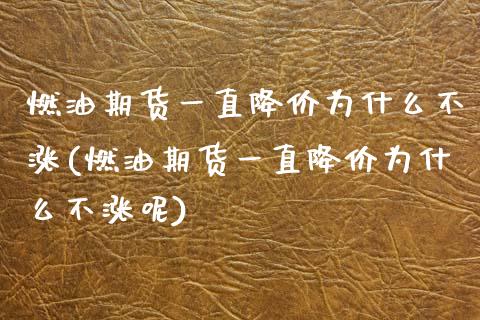 燃油期货一直降价为什么不
涨(燃油期货一直降价为什
么不涨呢)